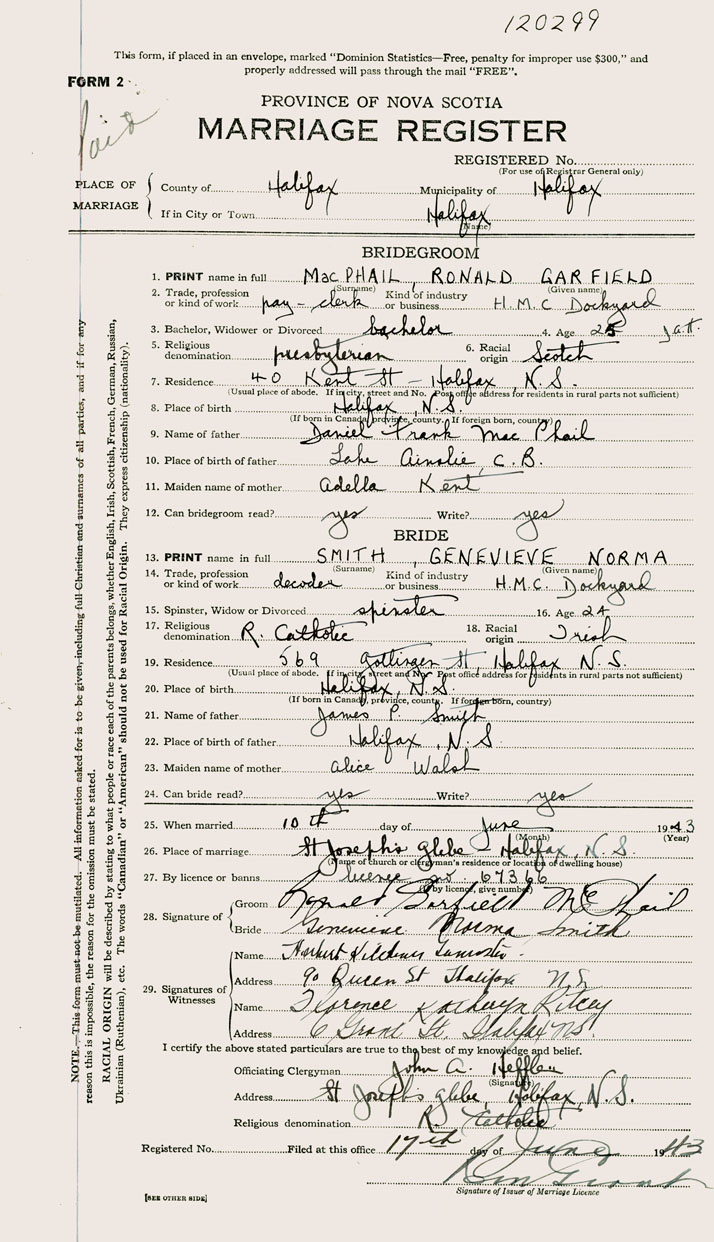 120299
This form, if placed in an envelope, marked "Dominion Statistics—Free, penalty for improper use $300," and
properly addressed will pass through the mail "FREE".
FORM 2
Paid
PROVINCE OF NOVA SCOTIA
MARRIAGE REGISTER
REGISTERED No.
(For use of Registrar General only)
PLACE OF MARRIAGE
County of Halifax Municipality of Halifax
If in City or Town Halifax
(Name)
BRIDEGROOM
1. PRINT name in full MacPHAIL, RONALD GARFIELD
(Surname) (Given name)
2. Trade, profession or kind of work pay-clerk Kind of industry or business H.M.C Dockyard
3. Bachelor, Widower or Divorced bachelor 4. Age 25
5. Religious denomination presbyterian 6. Racial origin Scotch
7. Residence 40 Kent St – Halifax, N.S.
(Usual place of abode. If in city, street and No. Post office address for residents in rural parts not sufficient)
8. Place of birth Halifax, N.S.
(If born in Canada, province, county. If foreign born, country)
9. Name of father Daniel Frank MacPhail
10. Place of birth of father Lake Ainslie, C.B.
11. Maiden name of mother Adella Kent
12. Can bridegroom read? yes Write? yes
BRIDE
13. PRINT name in full SMITH, GENEVIEVE NORMA
(Surname) (Given name)
14. Trade, profession or kind of work decoder Kind of industry or business H.M.C. Dockyard
15. Spinster, Widow or Divorced spinster 16. Age 24
17. Religious denomination R. Catholic 18. Racial origin Irish
19. Residence 569 Gottingen St, Halifax N.S.
(Usual place of abode. If in city, street and No. Post office address for residents in rural parts not sufficient)
20. Place of birth Halifax, N.S.
(If born in Canada, province, county. If foreign born, country)
21. Name of father James P. Smith
22. Place of birth of father Halifax, N.S
23. Maiden name of mother Alice Walsh
24. Can bride read? yes Write? yes
25. When married 10th day of June 1943
(Month) (Year)
26. Place of marriage St Joseph's glebe – Halifax, N.S.
(Name of church or clergyman's residence or location of dwelling house)
27. By licence or banns licence no 67366
(If by licence, give number)
28. Signature of
Groom Ronald Garfield McPhail
Bride Genevieve Norma Smith
29. Signatures of Witnesses
Name Herbert
Address 90 Queen St Halifax N.S.
Name Florence Kathryn Ritcey
Address 6 Grant St. Halifax NS.
I certify the above stated particulars are true to the best of my knowledge and belief.
Officiating Clergyman John A. Heffler
(Signature)
Address St Joseph's glebe, Halifax, N.S.
Religious denomination R. Catholic
Registered No. Filed at this office 17th day of June 1943
Signature of Issuer of Marriage Licence
[SEE OTHER SIDE]
NOTE.—This form must not be mutilated. All information asked for is to be given, including full Christian and surnames of all parties, and if for any
reason this is impossible, the reason for the omission must be stated.
RACIAL ORIGIN will be described by stating to what people or race each of the parents belongs, whether English, Irish, Scottish, French, German, Russian,
Ukrainian (Ruthenian), etc. The words "Canadian" or "American" should not be used for Racial Origin. They express citizenship (nationality).